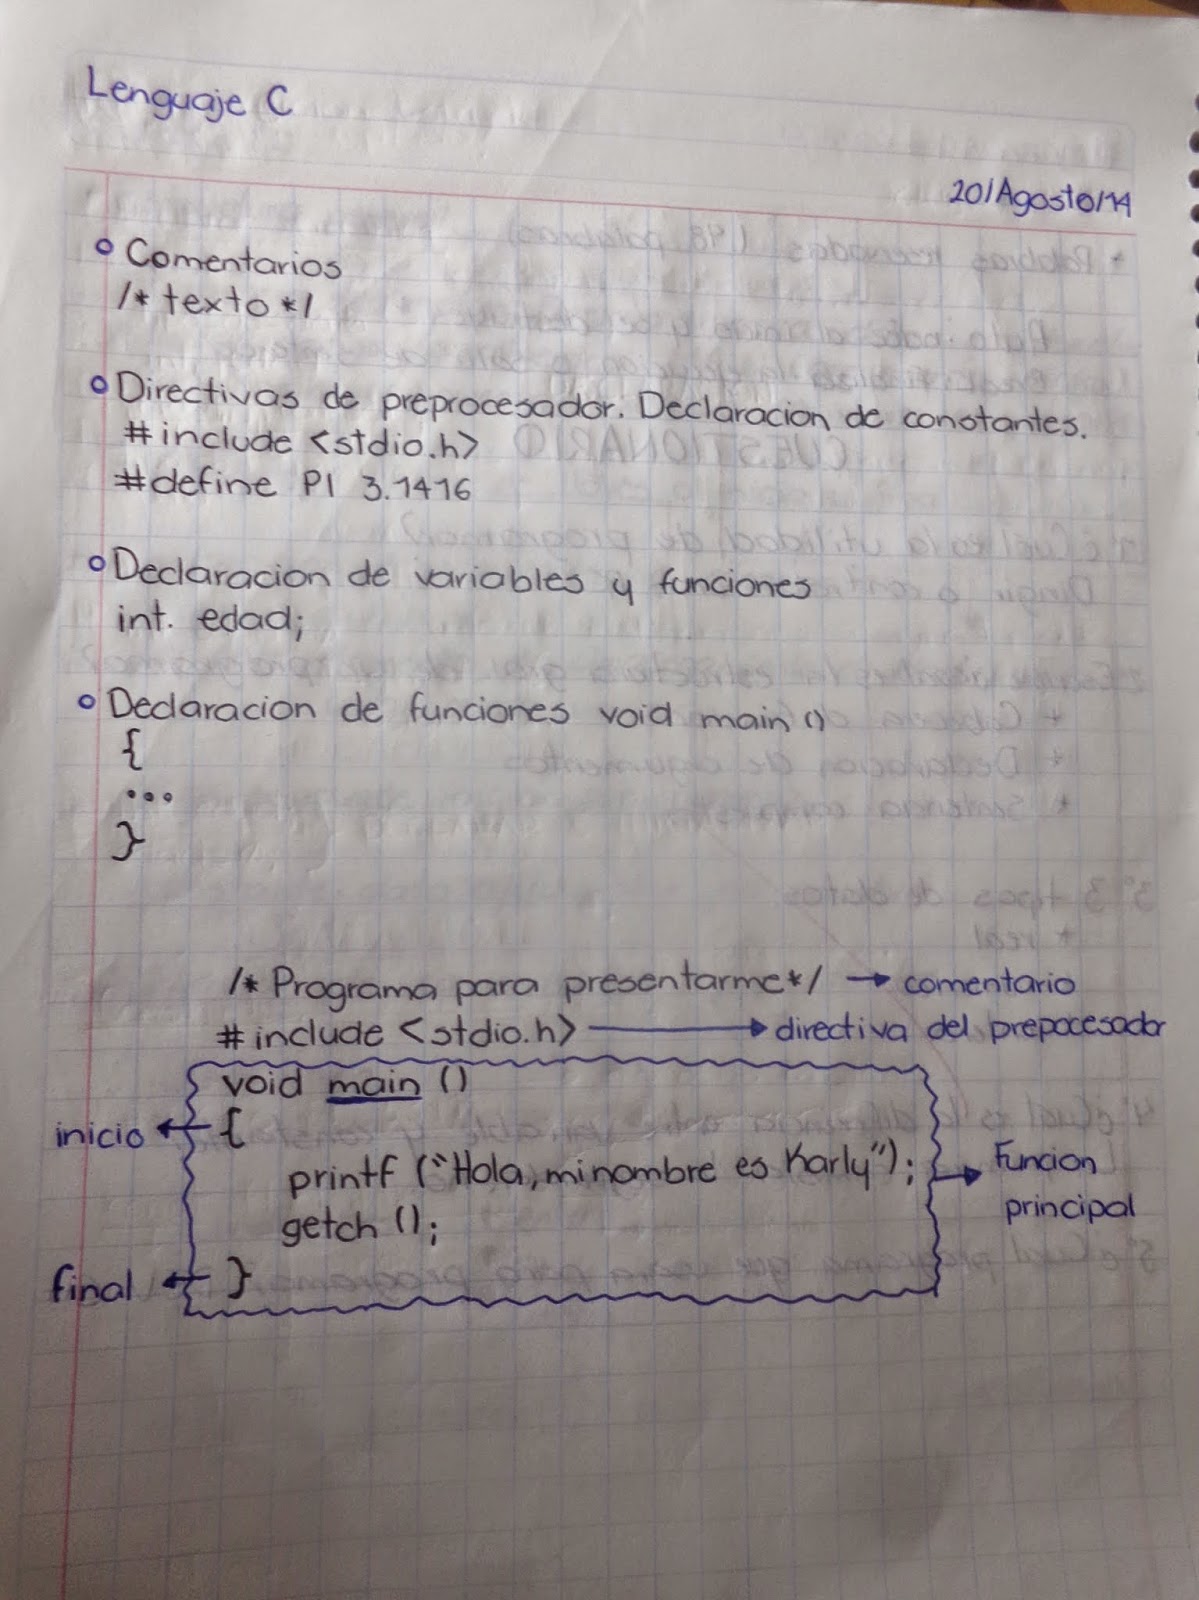 Lenguaje C
20/Agosto/14
Comentarios
/* texto */
Directivas de preprocesador. Declaracion de constantes.
# include <stdio.h>
#define PI 3.1416
Declaracion de variables y funciones
int. edad;
Declaracion de funciones void main ()
{
...
}
/* Programa para presentarme */ → comentario
# include <stdio.h> → directiva del prepocesador
void main ()
inicio ← {
printf ("Hola, mi nombre es Karly"); → Funcion
principal
getch ();
final ← }